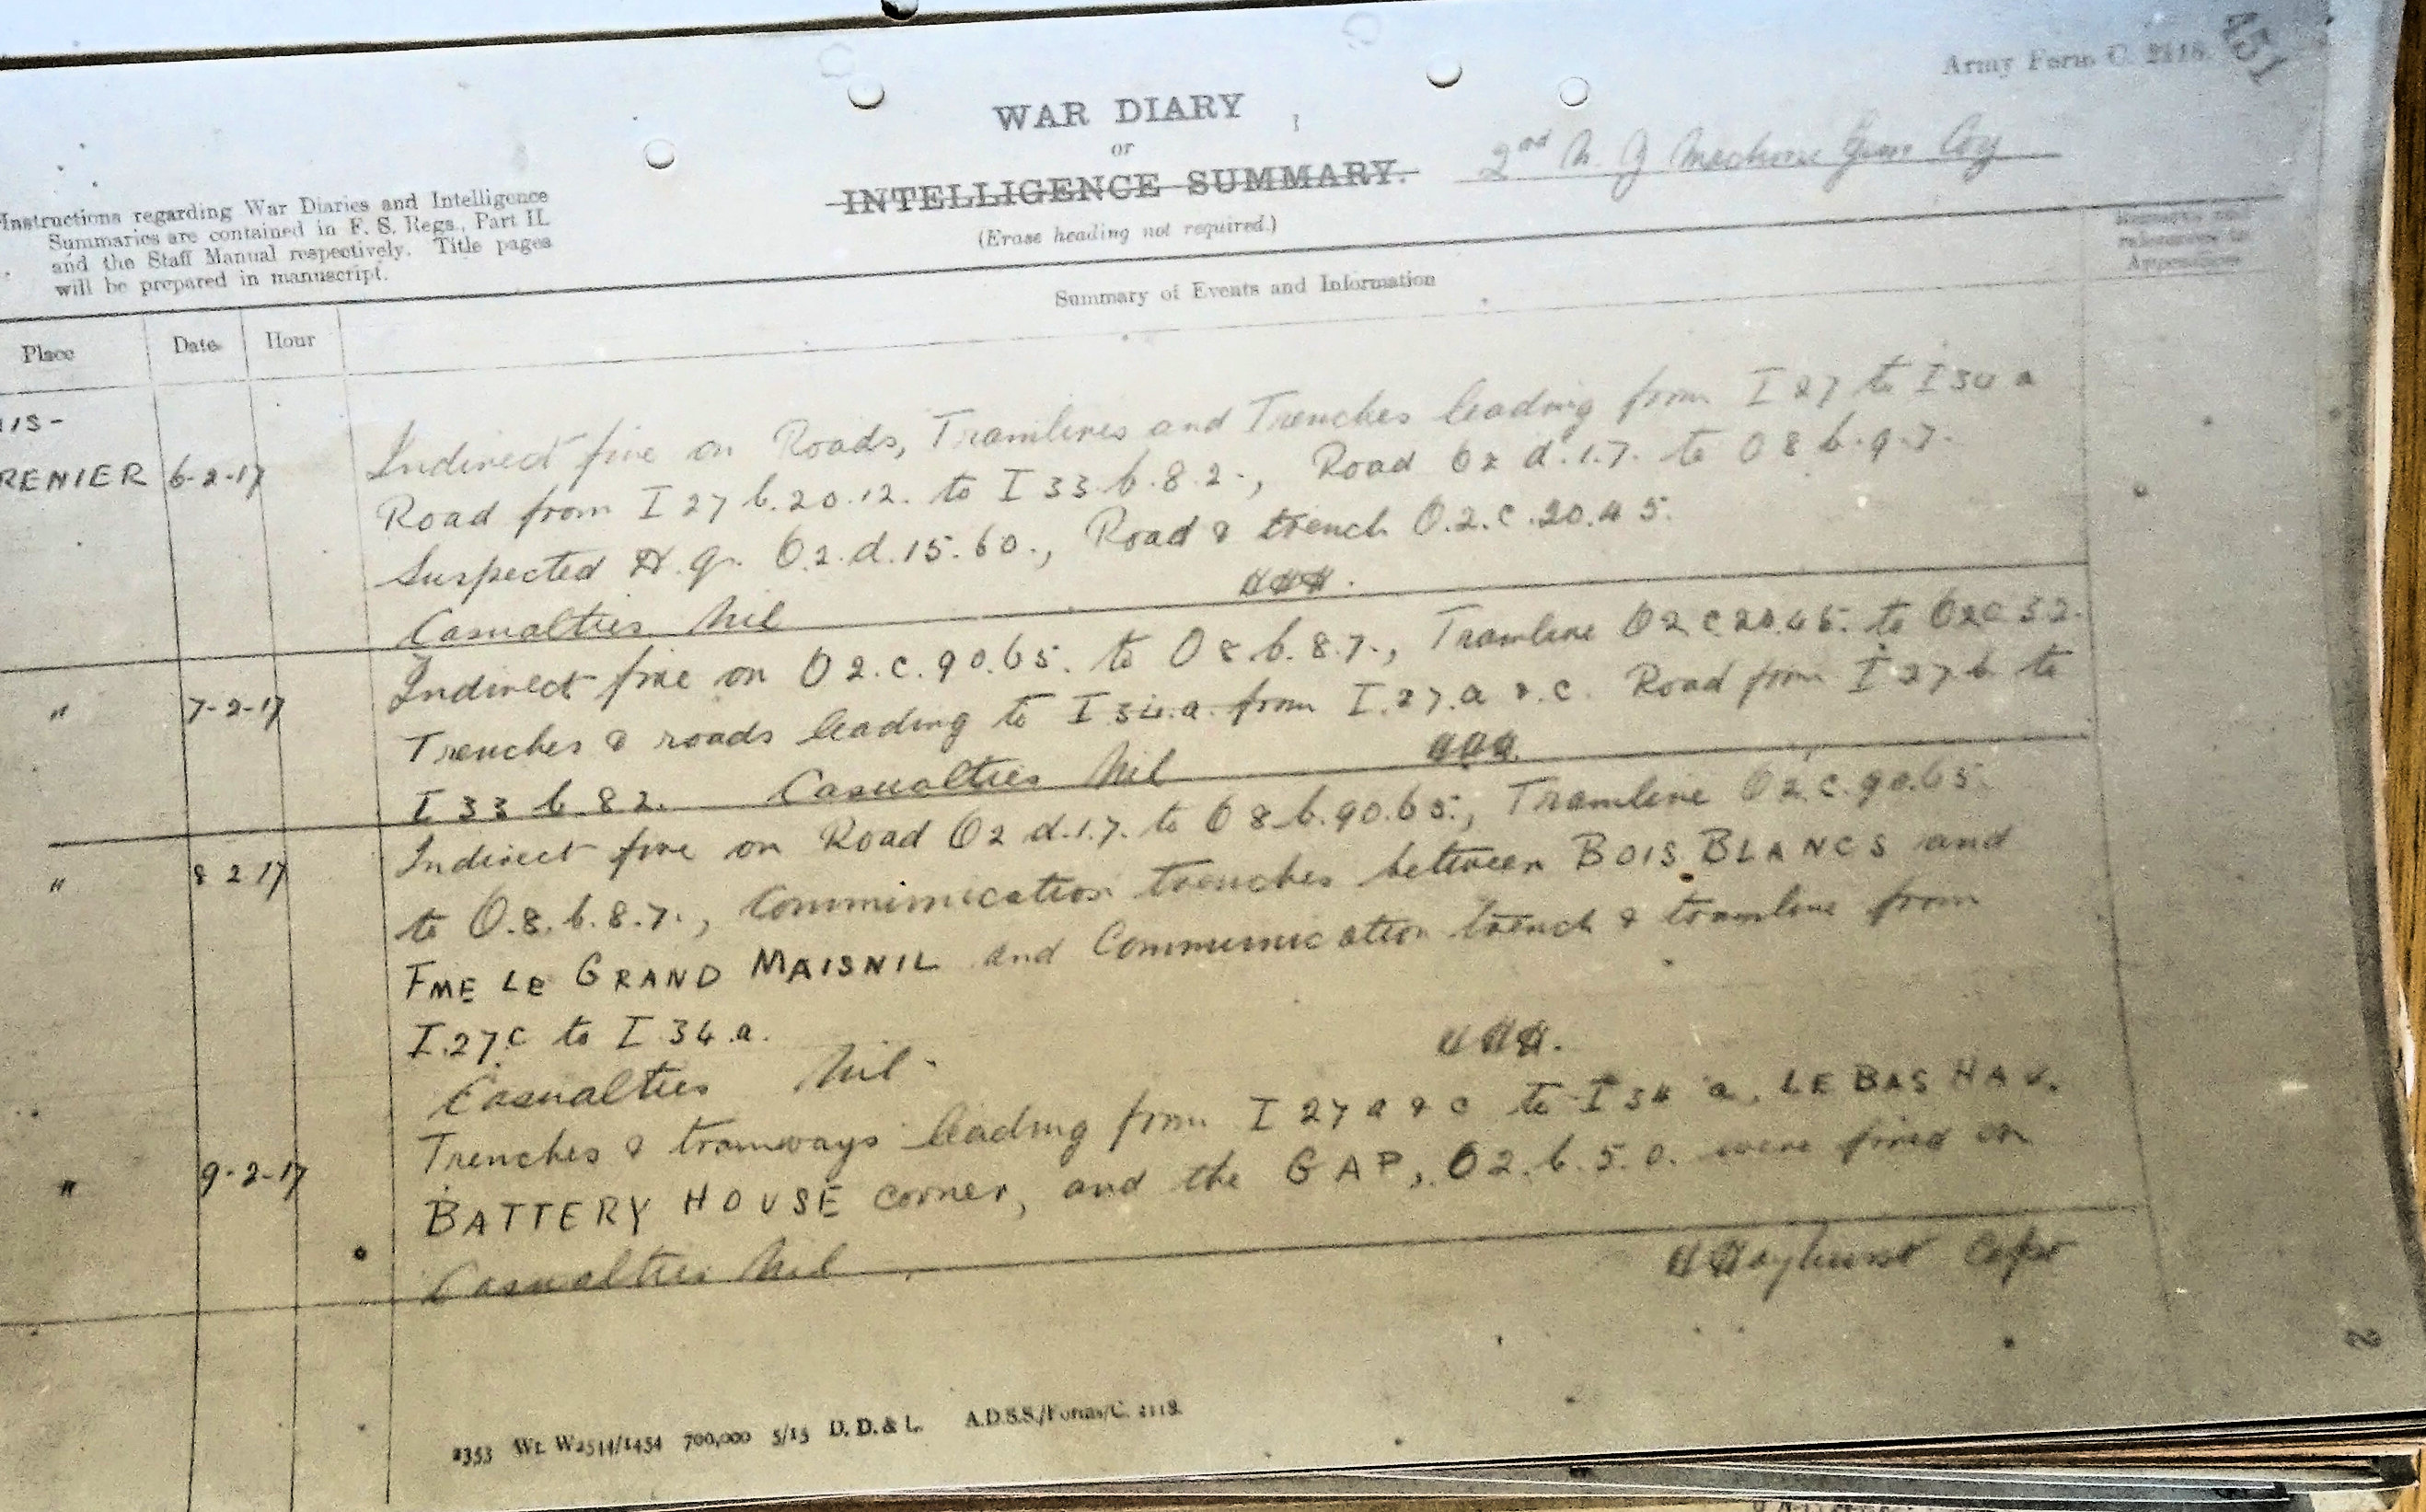 Army Form C. 2118.
A51
WAR DIARY
or
INTELLIGENCE SUMMARY.
(Erase heading not required.)
2nd N. Z Machine Gun Coy
Instructions regarding War Diaries and Intelligence
Summaries are contained in F. S. Regs., Part II.
and the Staff Manual respectively. Title pages
will be prepared in manuscript.
Remarks and
references to
Appendices
Summary of Events and Information
Place Date Hour
Indirect fire on Roads, Tramlines and Trenches leading from I 27 to I 34 a
RENIER 6-2-17 Road from I 27 b.20.12. to I 33.b.8.2., Road O2 d.1.7. to O 8 b.9.7.
Suspected H.q. O.2.d.15.60., Road & trench O.2.c.20.45.
Casualties Nil
Indirect fire on O 2.c.90.65. to O 8.b.8.7., Tramline O2c20.45. to O2c32.
" 7-2-17 Trenches & roads leading to I.34.a. from I.27.a &.c. Road from I 27b to
I 33 b 82. Casualties Nil
Indirect fire on Road O2 d.1.7. to O 8.b.90.65., Tramline O2.c.90.65.
" 8 2 17 to O.8.b.8.7., Communication trenches between BOIS BLANCS and
FME LE GRAND MAISNIL and Communication trench & tramline from
I.27.c to I 34.a.
Casualties Nil.
Trenches & tramways leading from I 27 a & c to I 34 a, LE BAS HAU.
" 9-2-17 BATTERY HOUSE corner, and the GAP, O2.b.5.0. were fired on
Casualties Nil
Hayhurst Capt
2
2353 Wt. W2544/1454 700,000 5/15 D. D. & L. A.D.S.S./Forms/C. 2118.